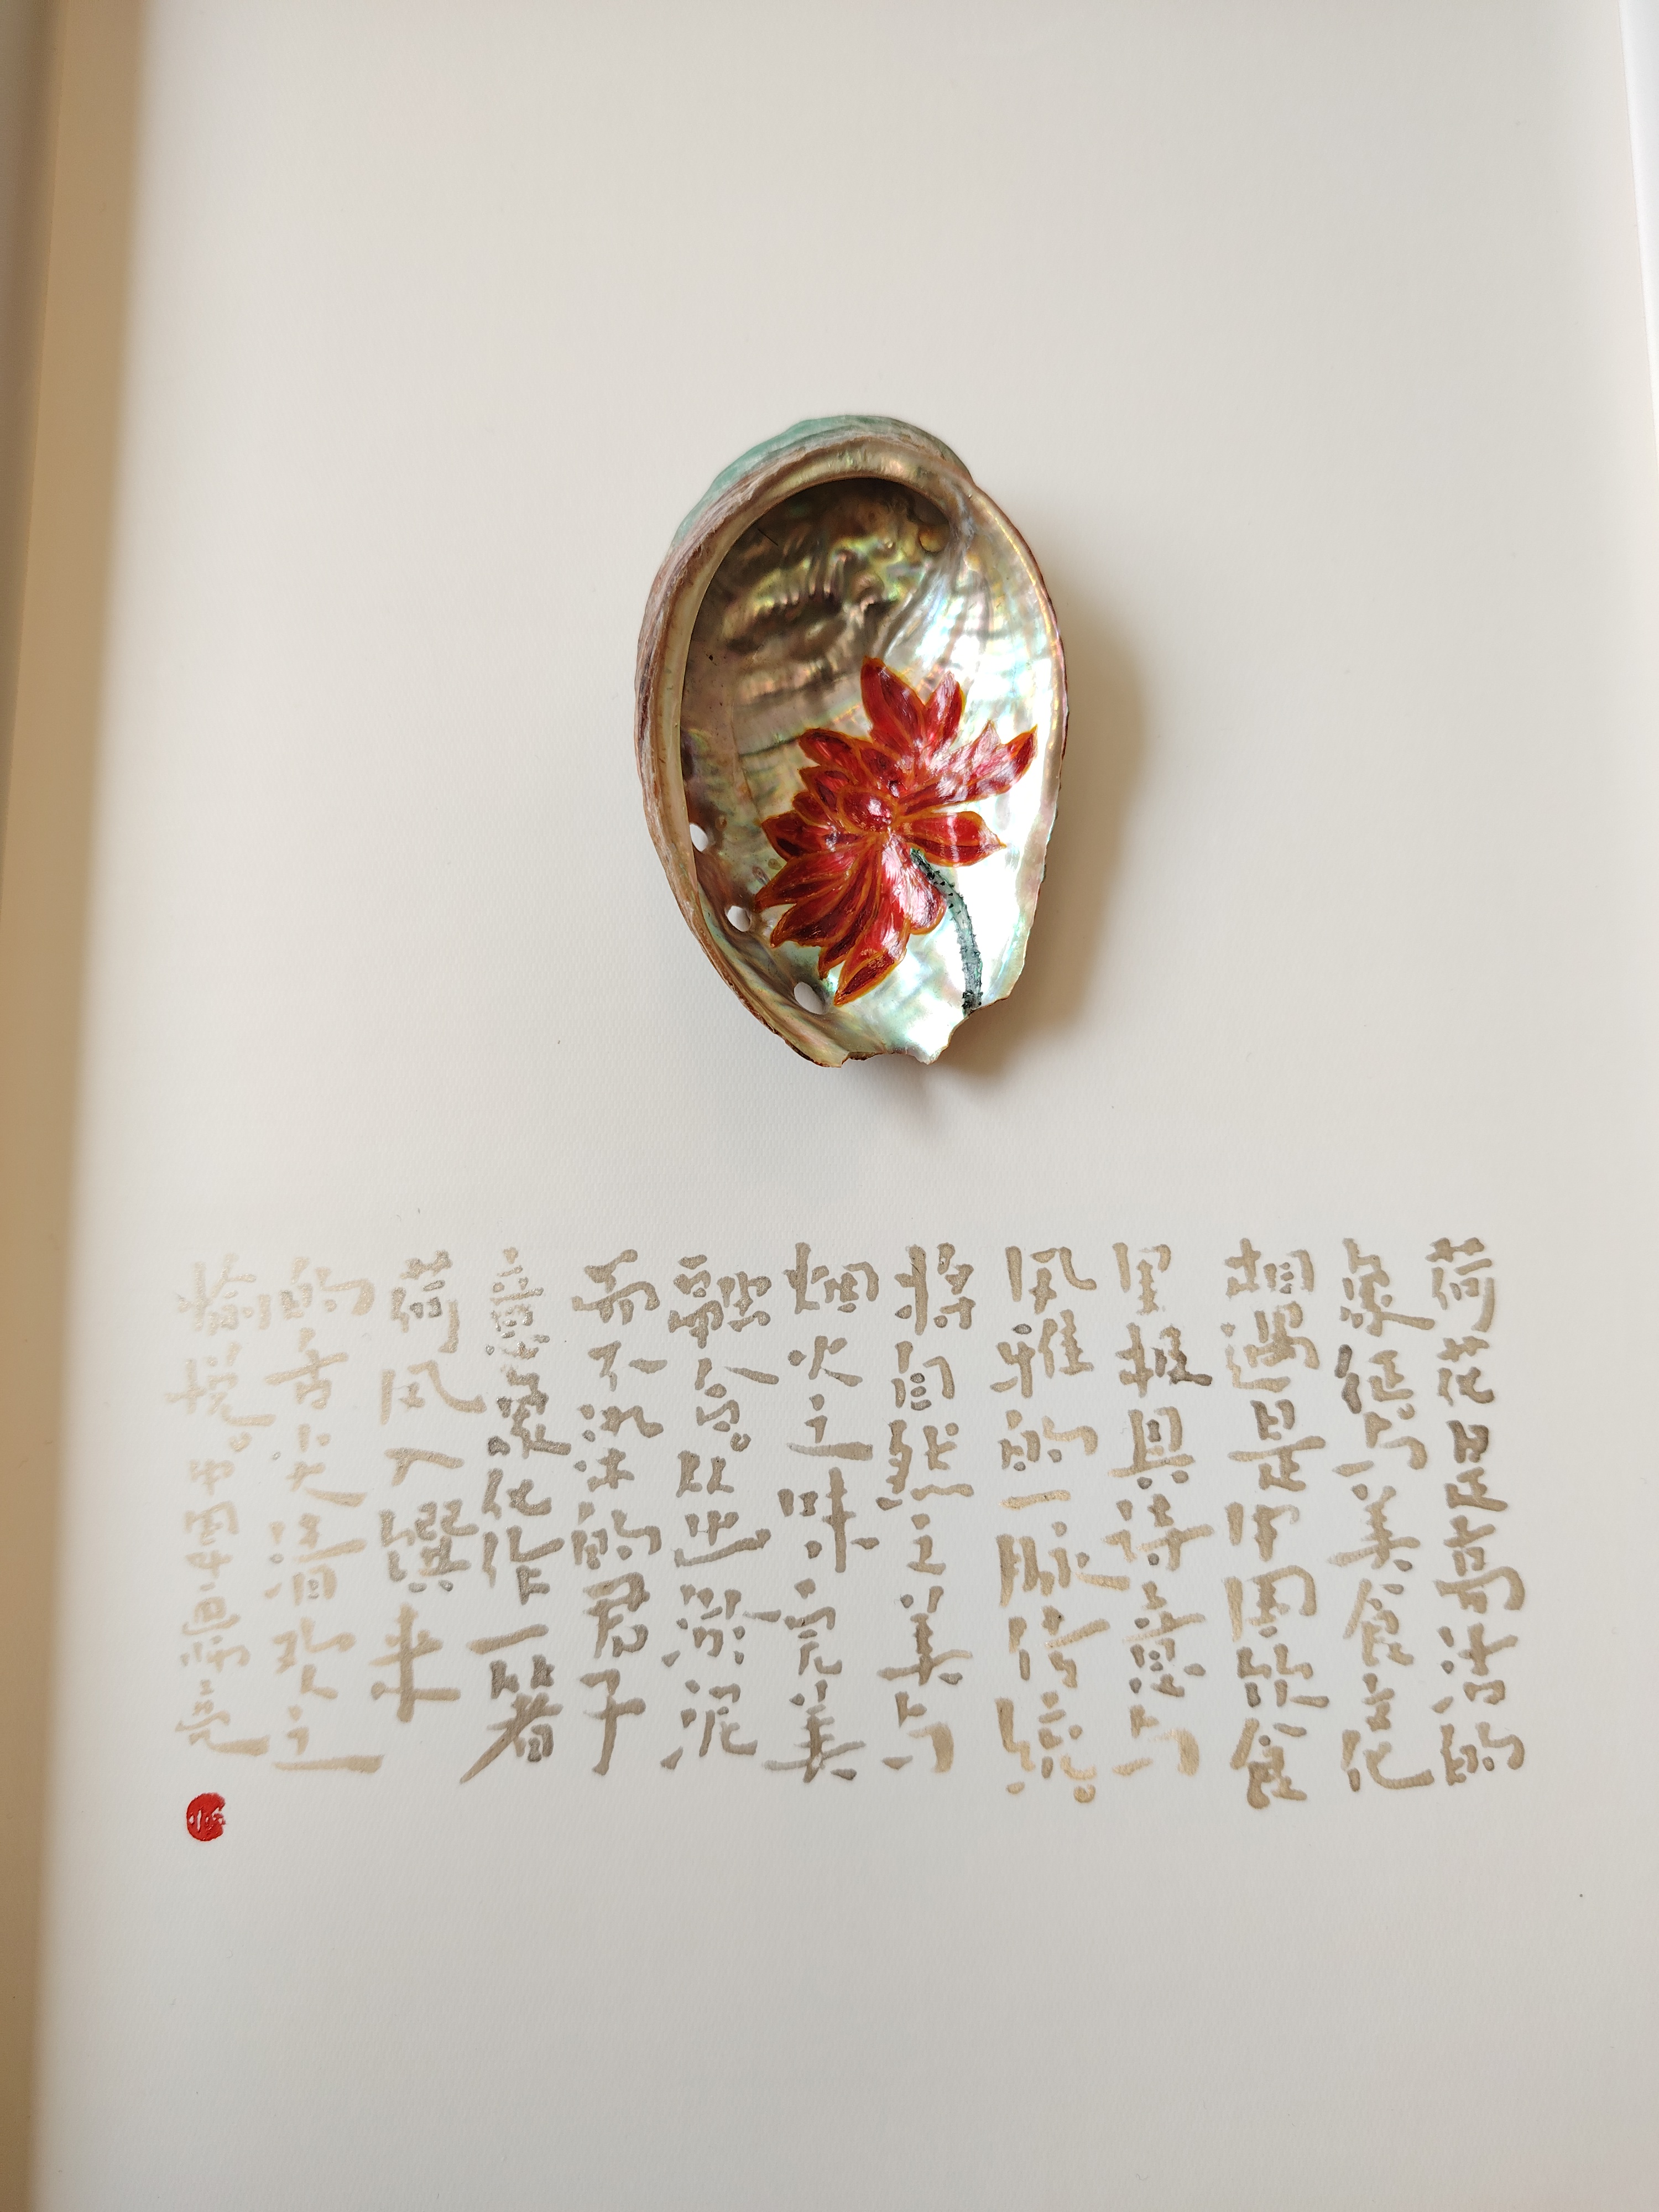 荷花是高洁的
象征与美食文化
相遇是中国饮食
里极具诗意与
风雅的一脉传统。
将自然之美与
烟火之味完美
融合。以出淤泥
而不染的君子
意象化作一箸
荷风入馔来
的舌尖 之